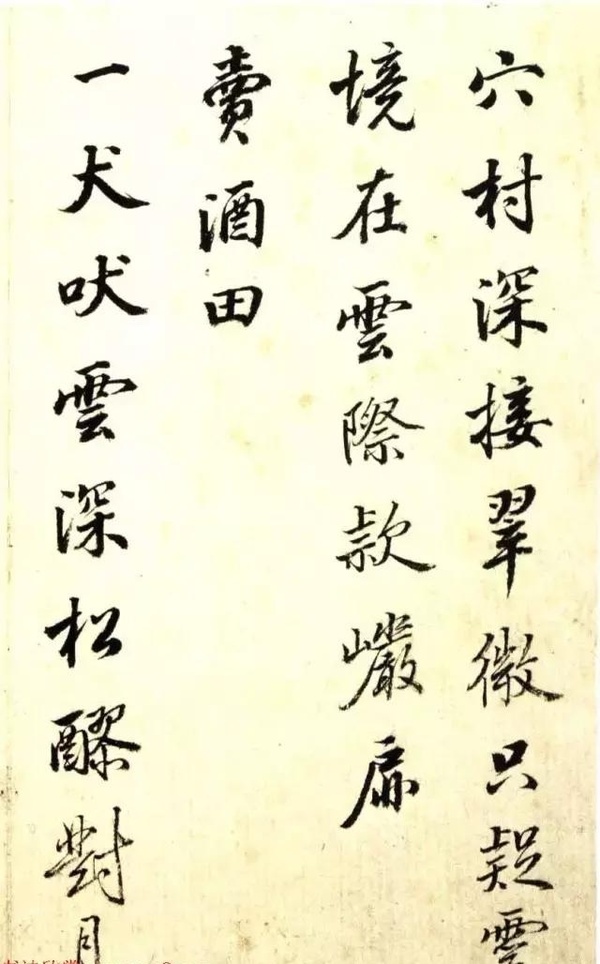 穴村深接翠微只疑雲
境在雲際款巖扉
賣酒田
一犬吠雲深松醪對月